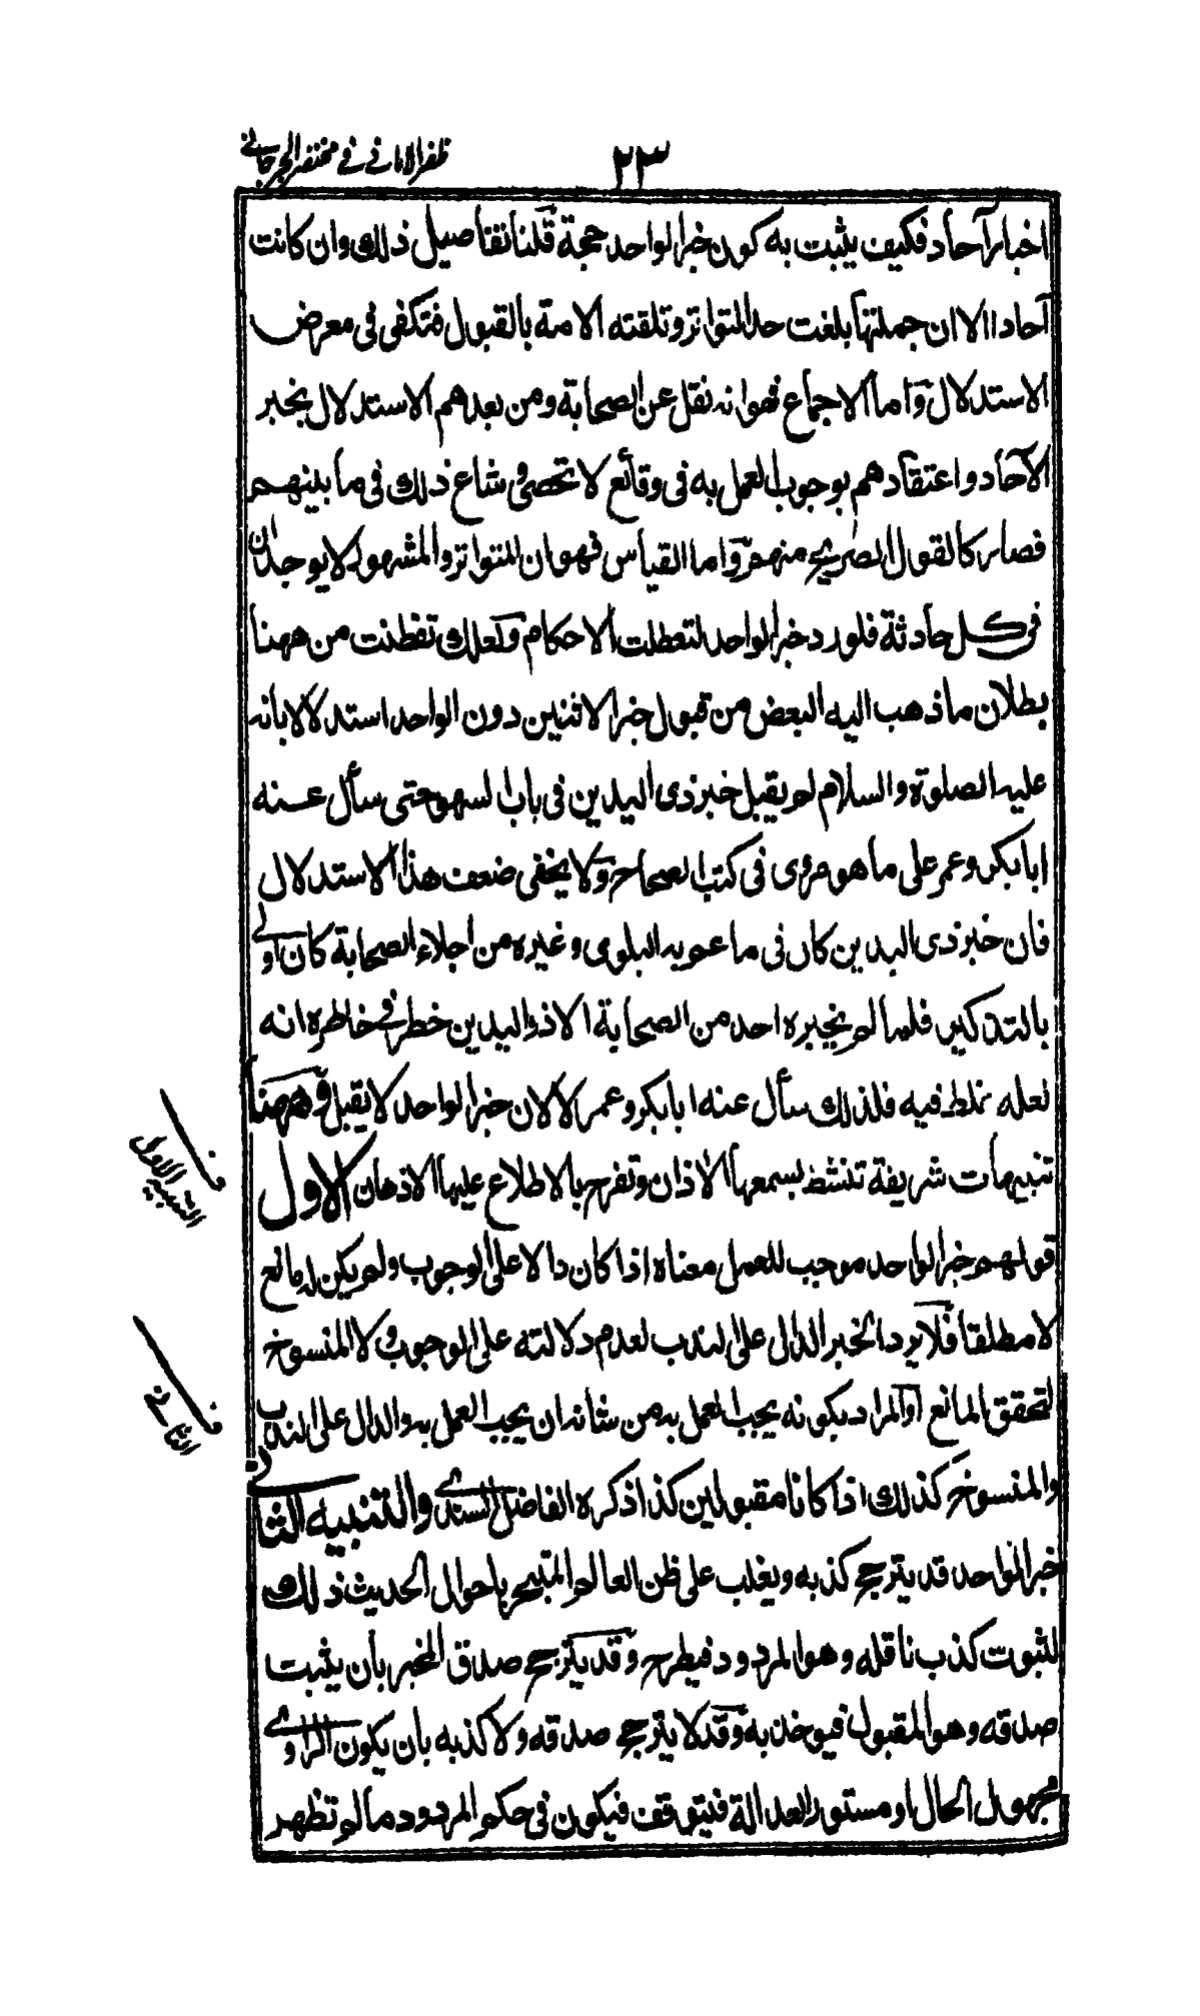 ٢٣
ظفر الاماني في مختصر الجرجاني
اخبار آحاد فكيف يثبت به كون خبر الواحد حجة قلنا تفاصيل ذلك وان كانت
آحادا الا ان جملتها بلغت حد المتواتر وتلقته الامة بالقبول فتكفى فى معرض
الاستدلال واما الاجماع فهو انه نقل عن الصحابة ومن بعدهم الاستدلال بخبر
الآحاد واعتقادهم بوجوب العمل به فى وقائع لا تحصى وشاع ذلك فى ما بينهم
فصار كالقول الصريح منهم واما القياس فهو ان المتواتر والمشهور لا يوجدان
فى كل حادثة فلو رد خبر الواحد لتعطلت الاحكام ولعلك تفطنت من ههنا
بطلان ما ذهب اليه البعض من قبول خبر الاثنين دون الواحد استدلالا بانه
عليه الصلوة والسلام لم يقبل خبر ذى اليدين فى باب السهو حتى سأل عنه
ابا بكر وعمر على ما هو مروى فى كتب الصحاح ولا يخفى ضعف هذا الاستدلال
فان خبر ذى اليدين كان فى ما عم به البلوى وغيره من اجلاء الصحابة كان اولى
بالتذكير فلما لم يخبره احد من الصحابة الا ذو اليدين خطر فى خاطره انه
لعله غلط فيه فلذلك سأل عنه ابا بكر وعمر لا لان خبر الواحد لا يقبل وههنا
تنبيهات شريفة تنشط بسمعها الآذان وتفرح بالاطلاع عليها الاذهان الاول
قولهم خبر الواحد موجب للعمل معناه اذا كان دالا على الوجوب ولم يكن له مانع
لا مطلقا فلا يرد الخبر الدال على الندب لعدم دلالته على الوجوب ولا المنسوخ
لتحقق المانع او المراد بكونه يجب العمل به من شانه ان يجب العمل به والدال على الندب
والمنسوخ كذلك اذا كانا مقبولين كذا ذكره الفاضل السندى والتنبيه الثانى
خبر الواحد قد يترجح كذبه ويغلب على ظن العالم المتبحر باحوال الحديث ذلك
لثبوت كذب ناقله وهو المردود فيطرح وقد يترجح صدق المخبر بان يثبت
صدقه وهو المقبول فيوخذ به وقد لا يترجح صدقه ولا كذبه بان يكون الراوى
مجهول الحال او مستور العدالة فيتوقف فيكون فى حكم المردود ما لم تظهر
ف
التنبيه الاول
ف
الثانى